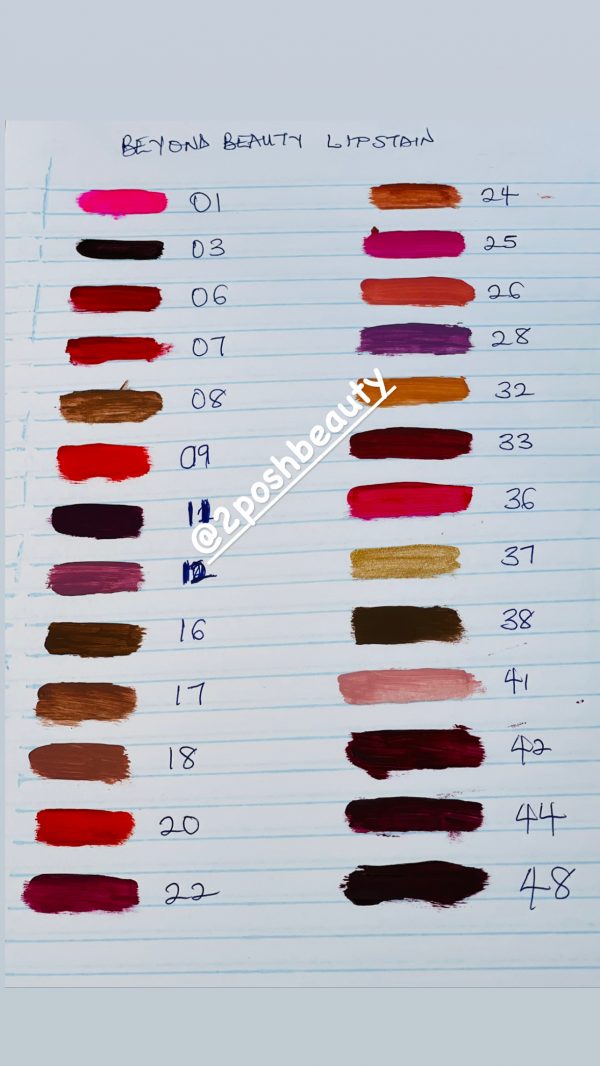 BEYOND BEAUTY LIPSTAIN
01
03
06
07
08
09
11
12
16
17
18
20
22
24
25
26
28
32
33
36
37
38
41
42
44
48
@2poshbeauty